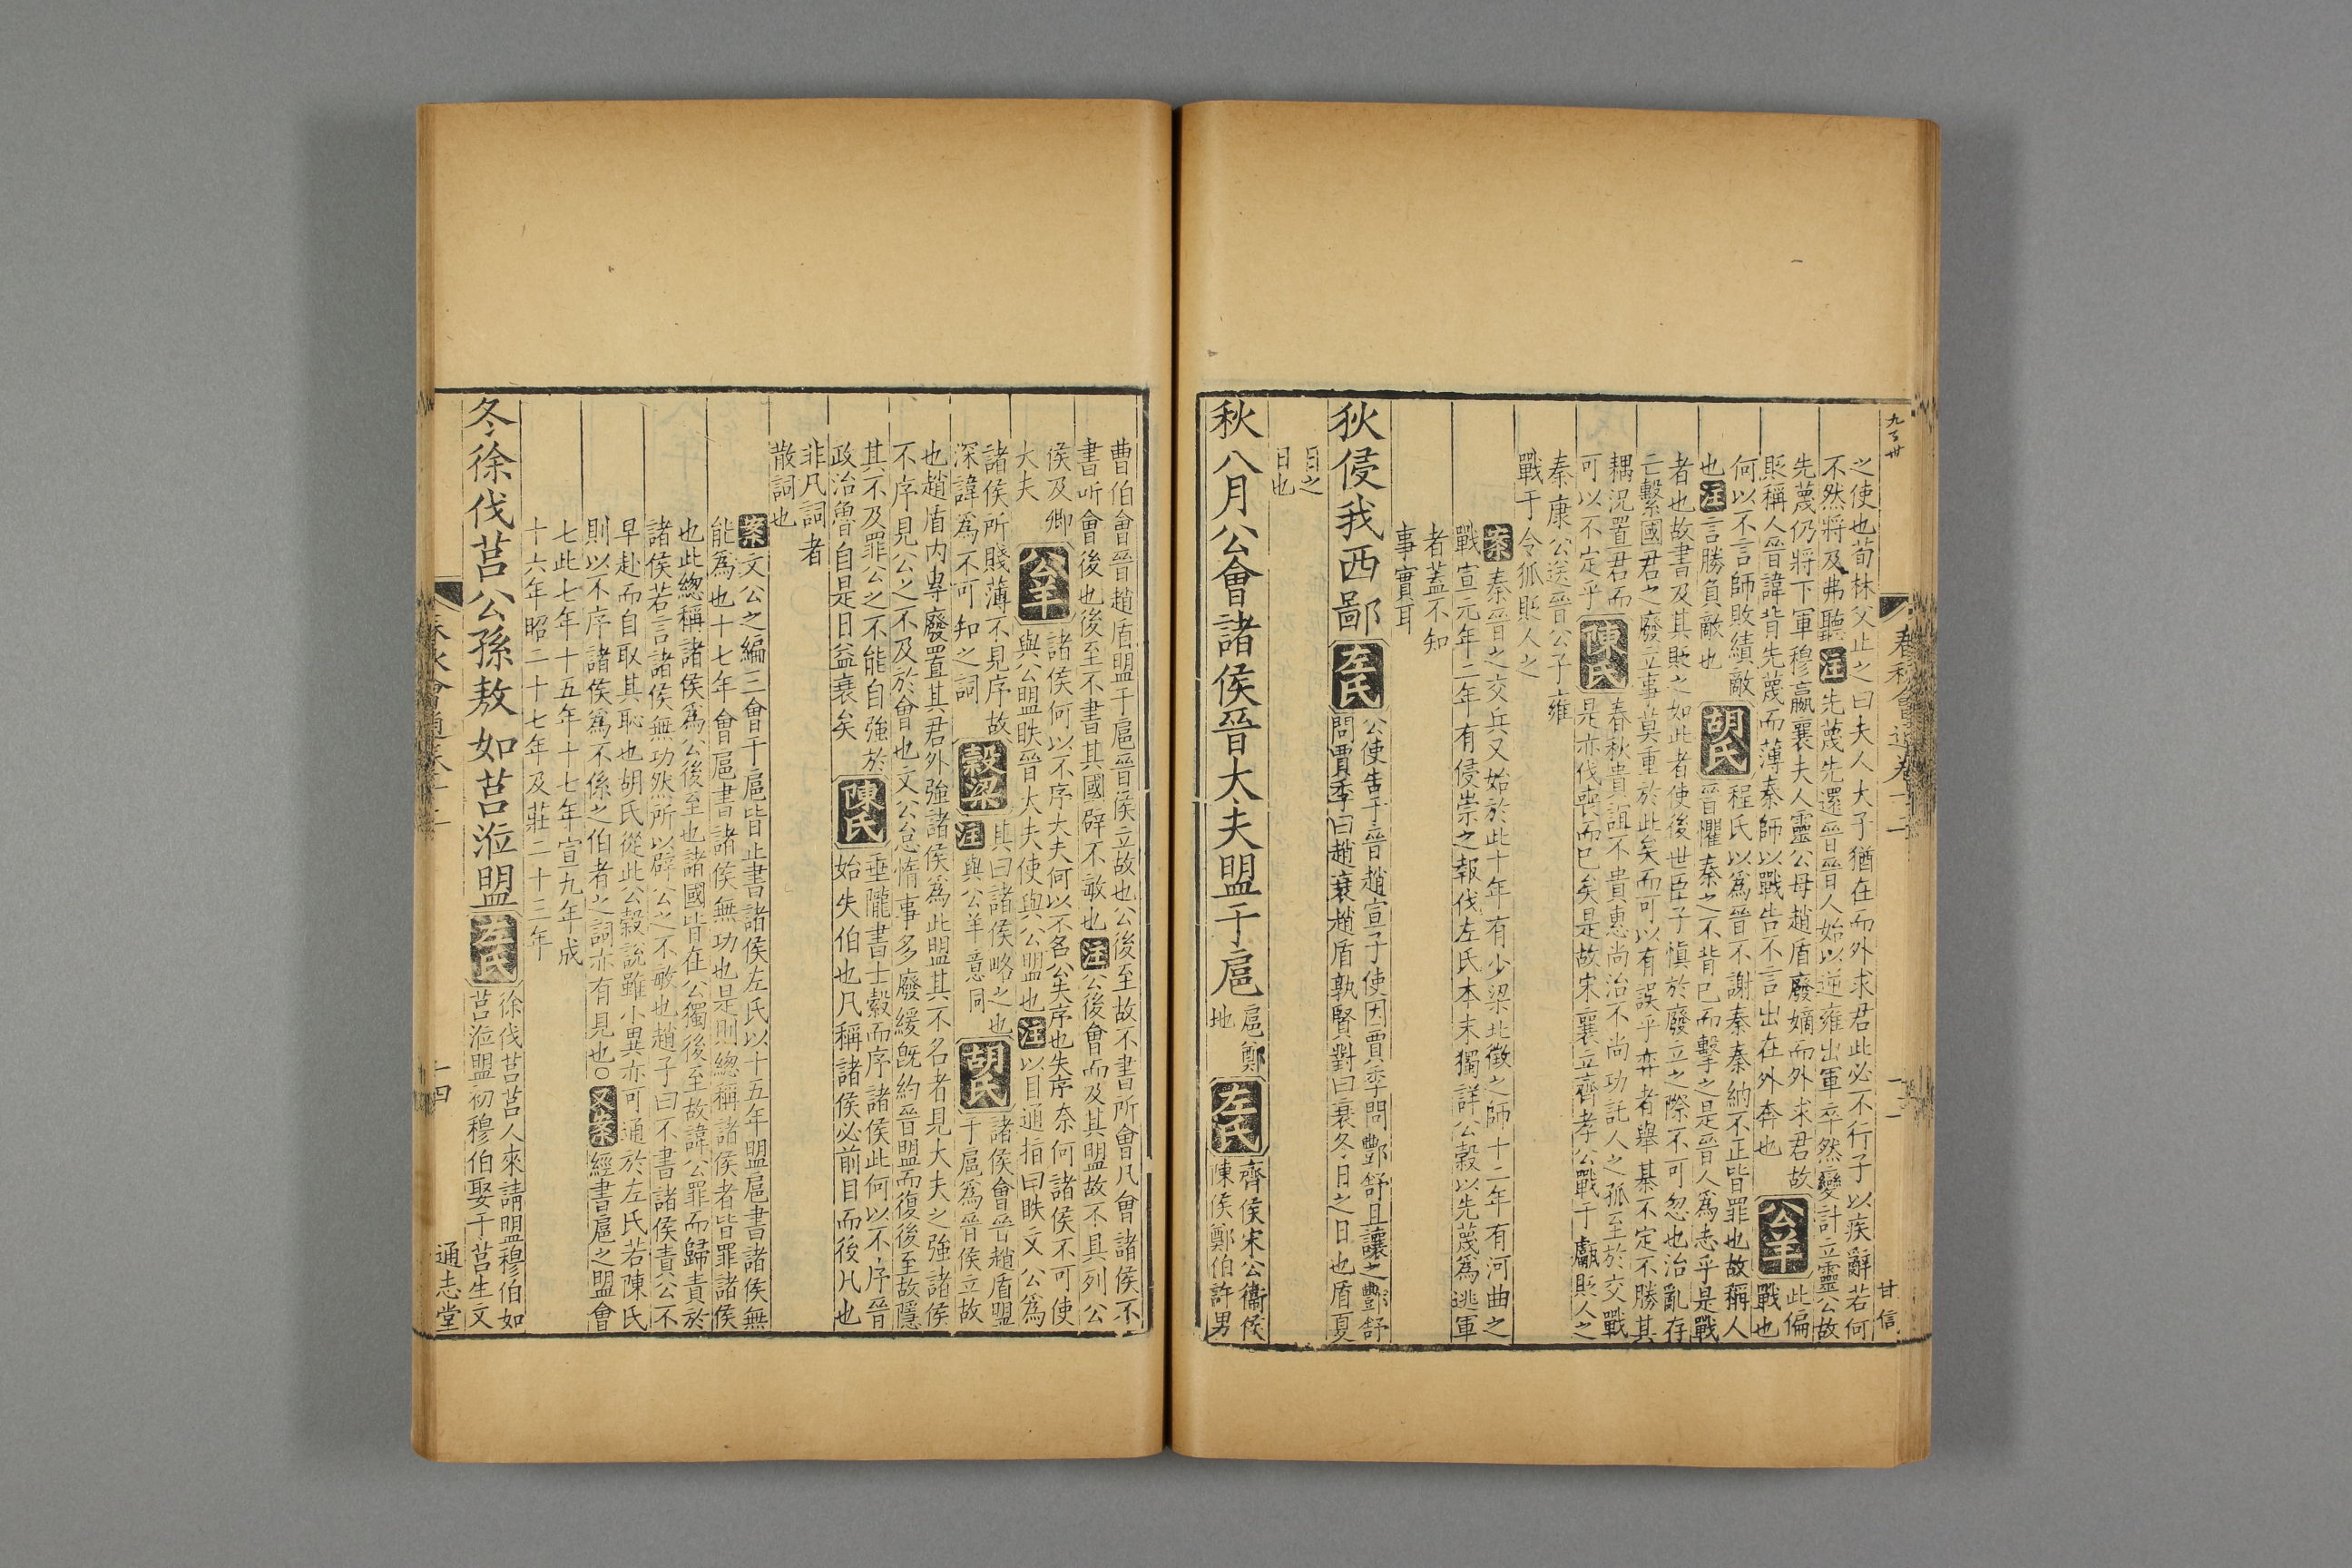 九百卅
春秋會通卷十二
甘信
之使也荀林父止之曰夫人大子猶在而外求君此必不行子以疾辭若何
不然將及弗聽注先蔑先還晉晉人始以逆雍出軍卒然變計立靈公故
先蔑仍將下軍穆嬴襄夫人靈公母趙盾廢嫡而外求君故公羊此偏
貶稱人晉諱背先蔑而薄秦師以戰告不言出在外奔也戰也
何以不言師敗績敵胡氏程氏以爲晉不謝秦秦納不正皆罪也故稱人
也注言勝負敵也晉懼秦之不背己而擊之是晉人爲志乎是戰
者也故書及其貶之如此者使後世臣子慎於廢立之際不可忽也治亂存
亡繫國君之廢立事莫重於此矣而可以有誤乎弈者舉棊不定不勝其
耦況置君而陳氏春秋貴詛不貴惠尚治不尚功託人之孤至於交戰
可以不定乎是亦伐喪而已矣是故宋襄立齊孝公戰于甗貶人之
秦康公送晉公子雍
戰于令狐貶人之
案秦晉之交兵又始於此十年有少梁北徵之師十二年有河曲之
戰宣元年二年有侵崇之報伐左氏本末獨詳公穀以先蔑爲逃軍
者蓋不知
事實耳
狄侵我西鄙左氏公使告于晉趙宣子使因賈季問酆舒且讓之酆舒
問賈季曰趙衰趙盾孰賢對曰衰冬日之日也盾夏
日之
日也
秋八月公會諸侯晉大夫盟于扈扈鄭地左氏齊侯宋公衞侯
陳侯鄭伯許男
曹伯會晉趙盾盟于扈晉侯立故也公後至故不書所會凡會諸侯不
書所會後也後至不書其國辟不敏也注公後會而及其盟故不具列公
侯及卿公羊諸侯何以不序大夫何以不名公失序也失序奈何諸侯不可使
大夫與公盟眣晉大夫使與公盟也注以目通指曰眣文公爲
諸侯所賤薄不見序故穀梁其曰諸侯略之也胡氏諸侯會晉趙盾盟
深諱爲不可知之詞注與公羊意同于扈爲晉侯立故
也趙盾内專廢置其君外強諸侯爲此盟其不名者見大夫之強諸侯
不序見公之不及於會也文公怠惰事多廢緩旣約晉盟而復後至故隱
其不及罪公之不能自強於陳氏垂隴書士縠而序諸侯此何以不序晉
政治魯自是日益衰矣始失伯也凡稱諸侯必前目而後凡也
非凡詞者
散詞也
案文公之編三會于扈皆止書諸侯左氏以十五年盟扈書諸侯無
能爲也十七年會扈書諸侯無功也是則總稱諸侯者皆罪諸侯
也此總稱諸侯爲公後至也諸國皆在公獨後至故諱公罪而歸責於
諸侯若言諸侯無功然所以辟公之不敏也趙子曰不書諸侯責公不
早赴而自取其恥也胡氏從此公穀說雖小異亦可通於左氏若陳氏
則以不序諸侯爲不係之伯者之詞亦有見也○又案經書扈之盟會
七此七年十五年十七年宣九年成
十六年昭二十七年及莊二十三年
冬徐伐莒公孫敖如莒涖盟左氏徐伐莒莒人來請盟穆伯如
莒涖盟初穆伯娶于莒生文
春秋會通卷十二
十四
通志堂